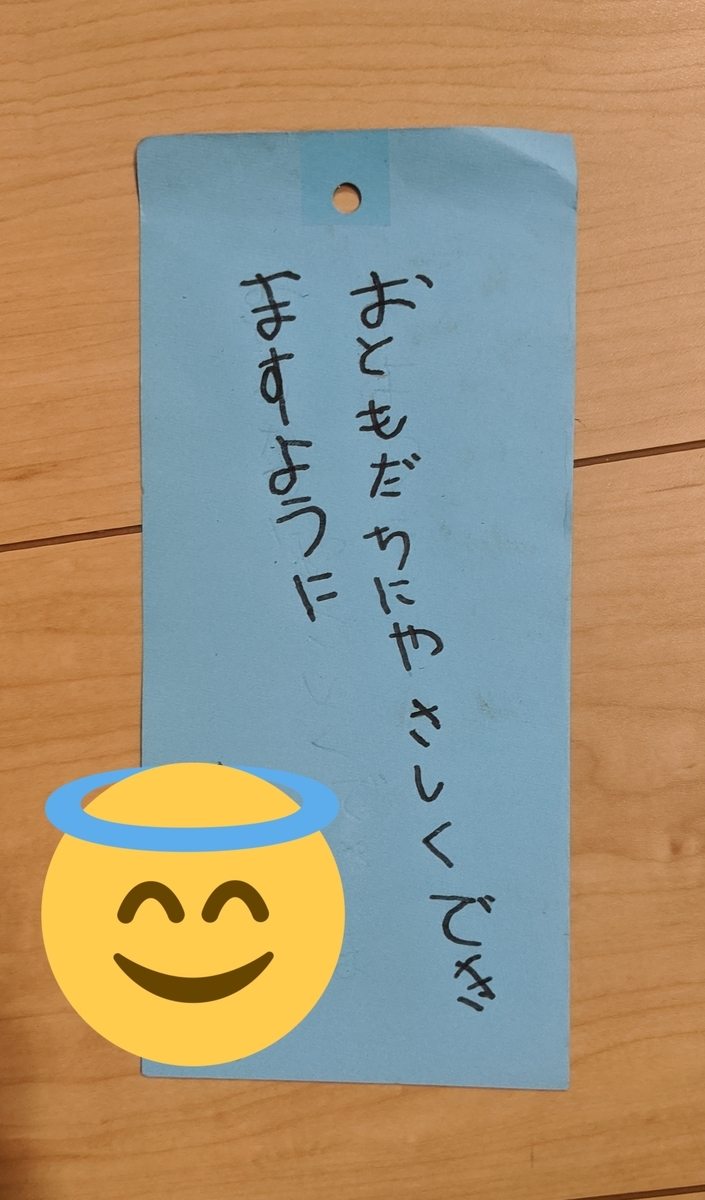 おともだちにやさしくでき
ますように